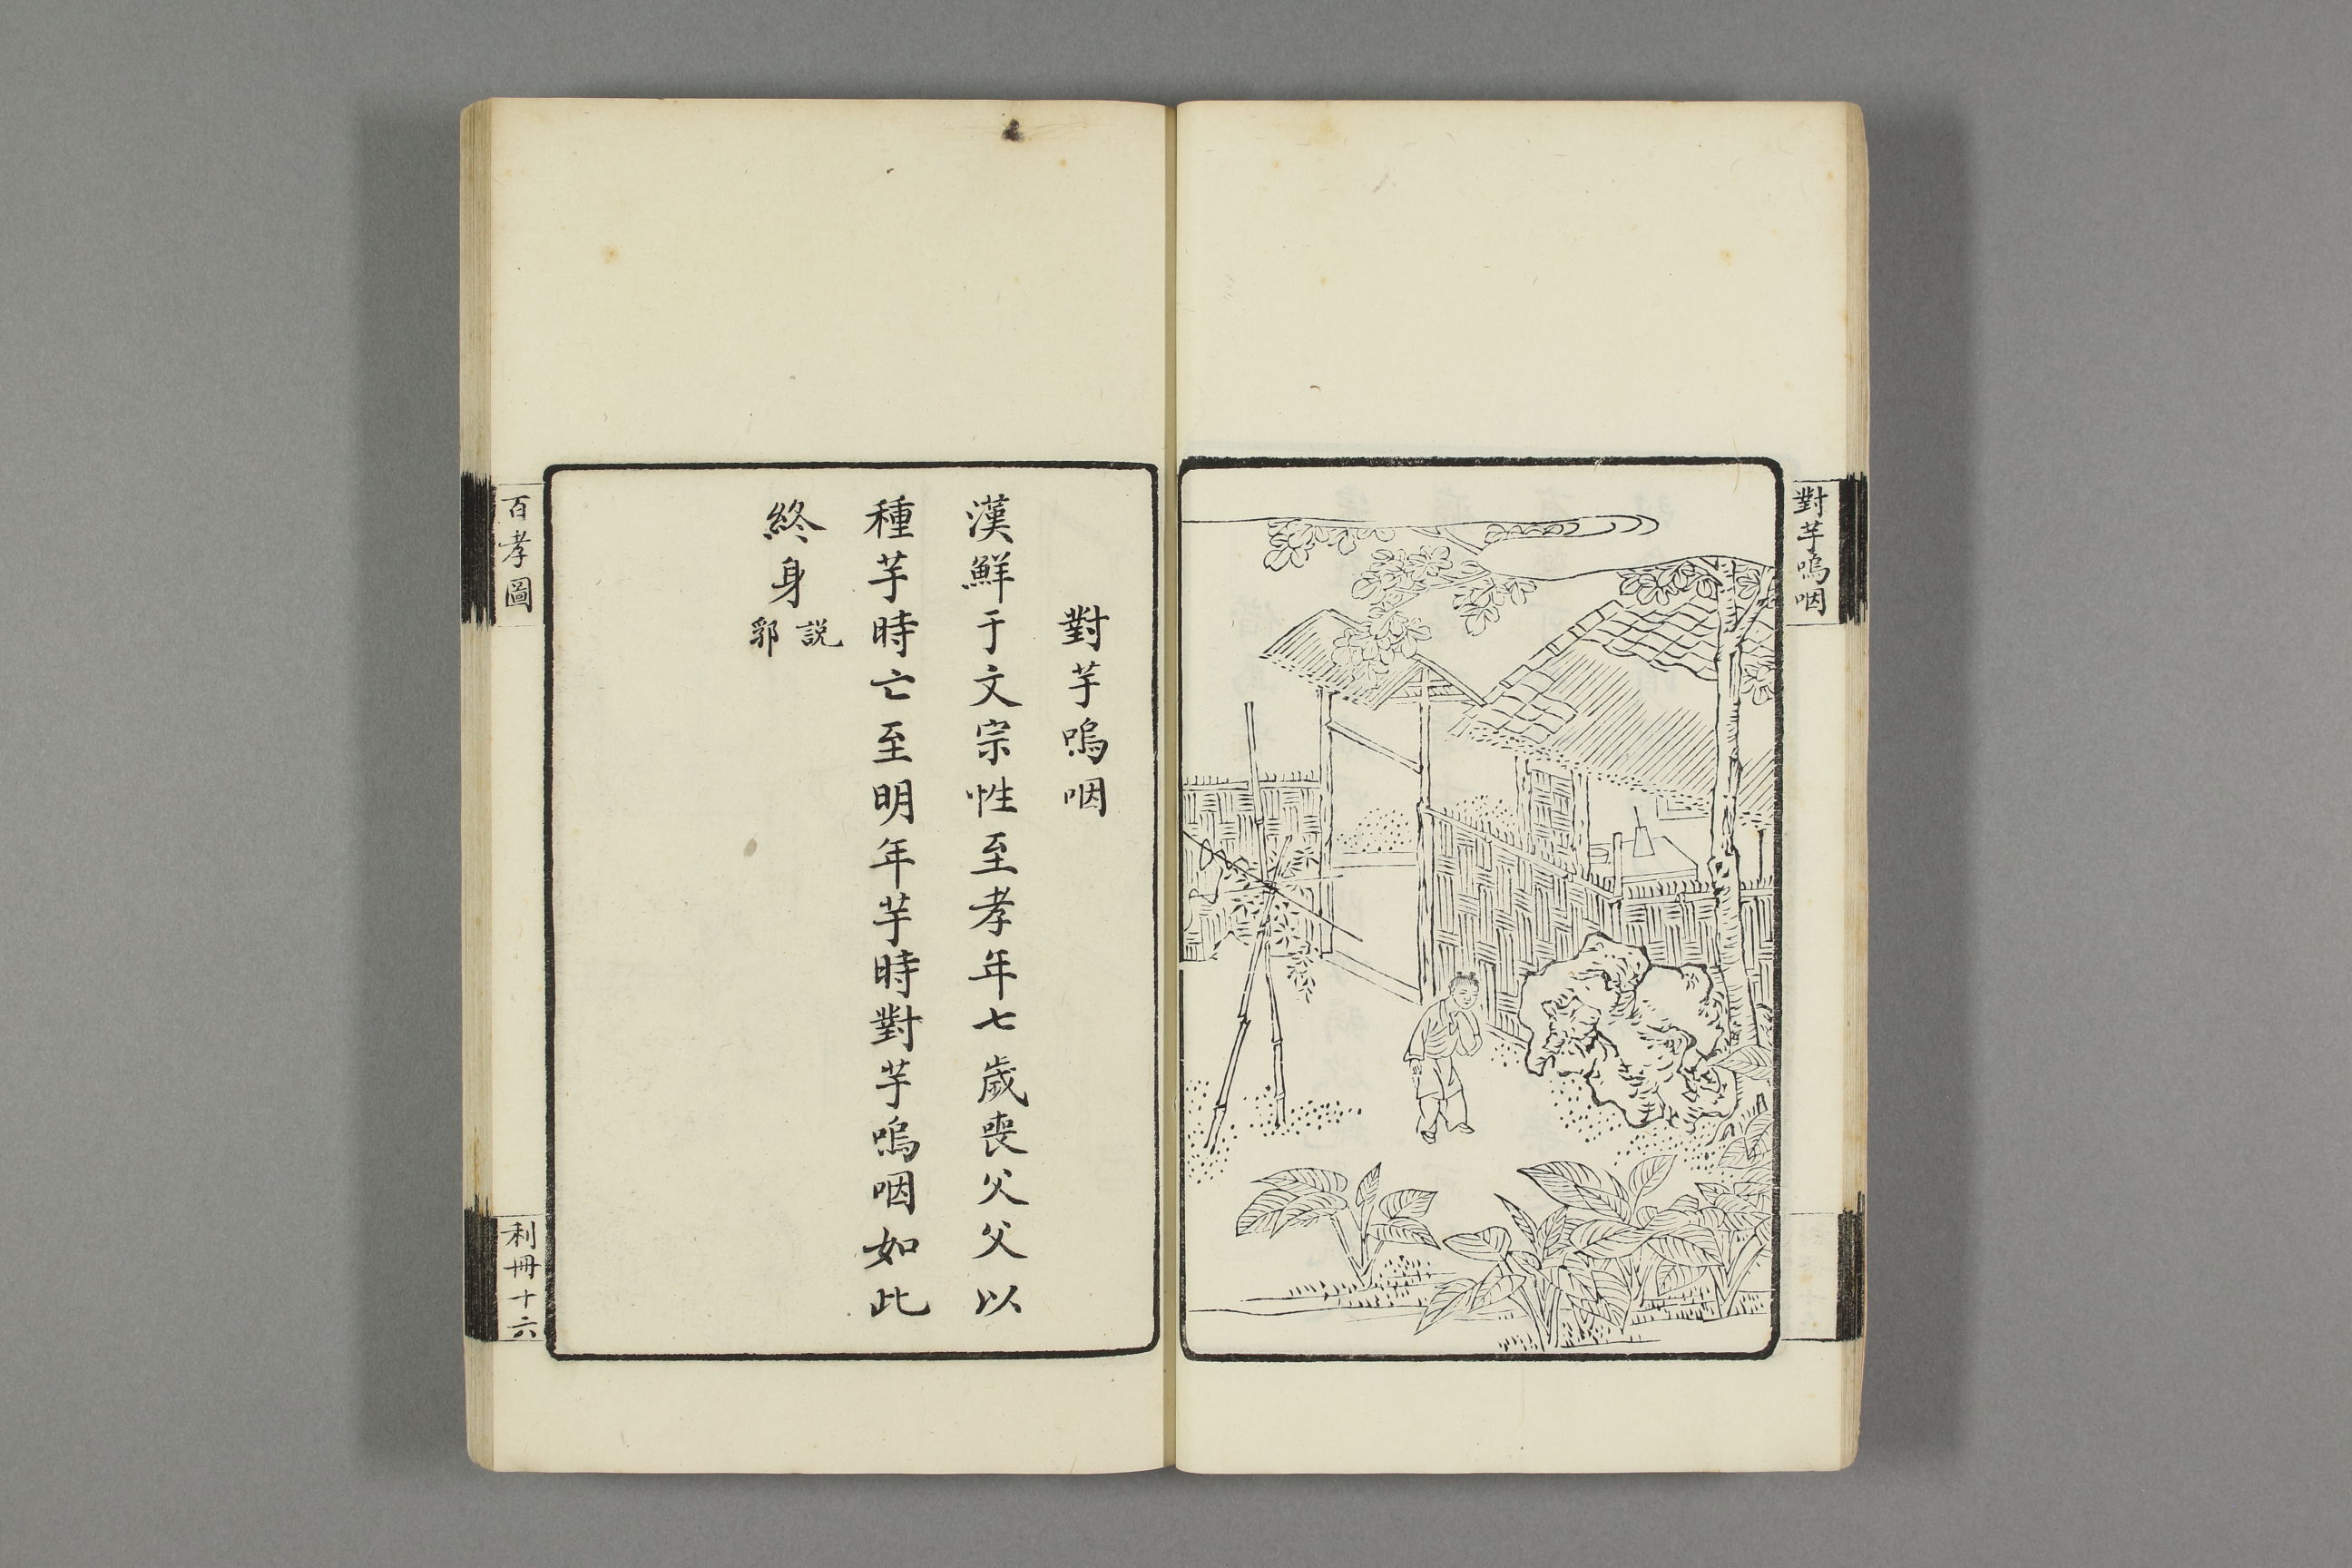 對芋嗚咽
對芋嗚咽
漢鮮于文宗性至孝年七歲喪父父以
種芋時亡至明年芋時對芋嗚咽如此
終身說郛
百孝圖
利冊十六